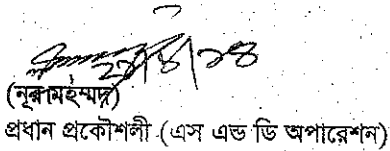 ২১/৪/১৪
(নূর মোহম্মদ)
প্রধান প্রকৌশলী (এস এন্ড ডি অপারেশন)